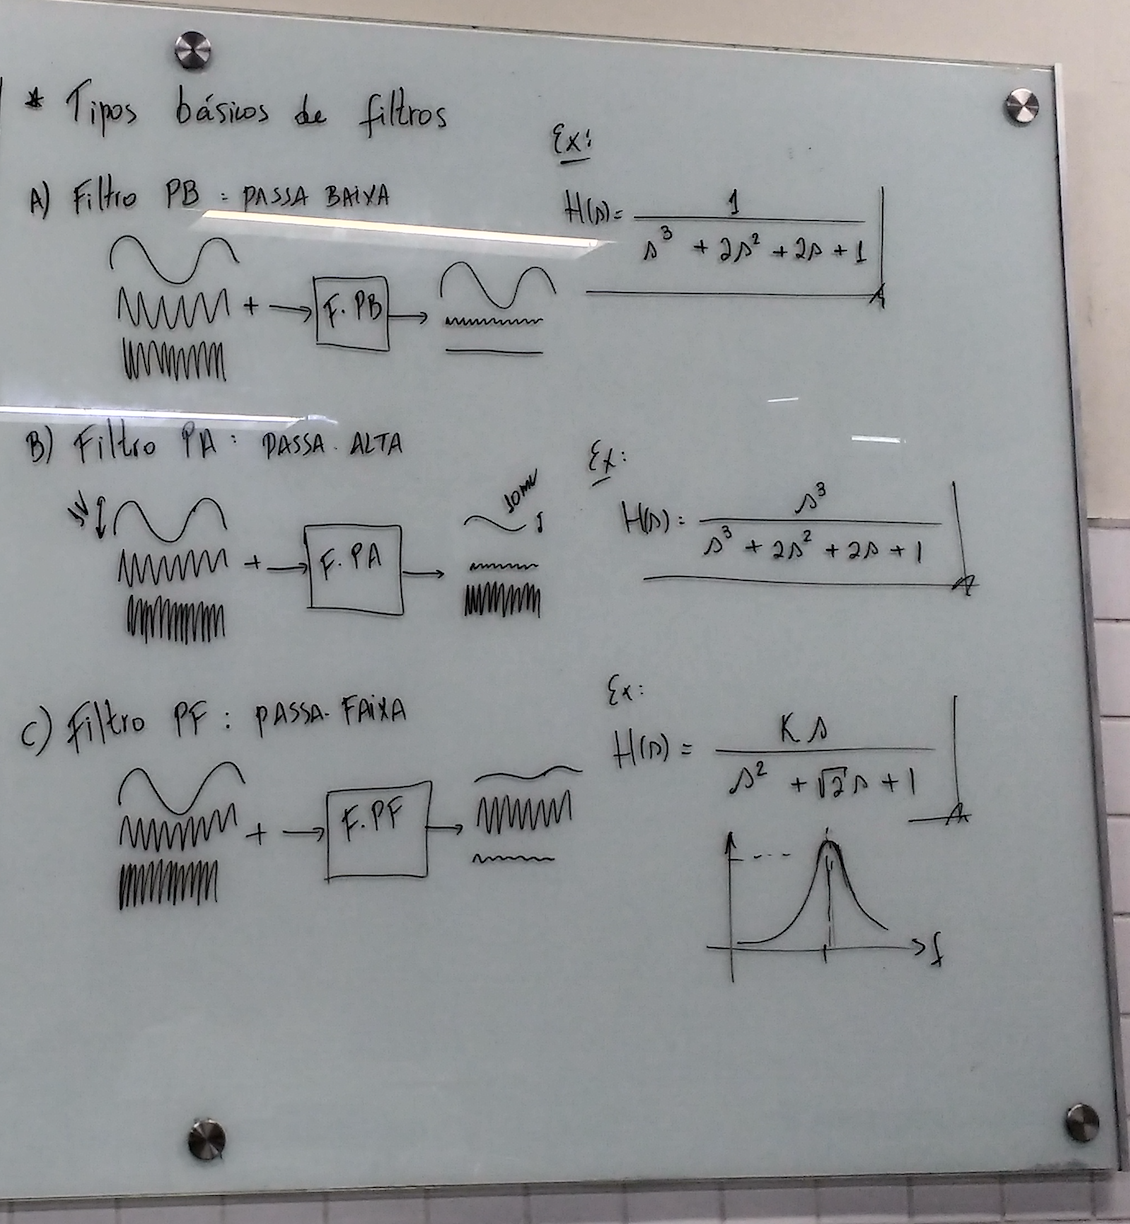 * Tipos básicos de filtros
A) Filtro PB : PASSA BAIXA
Ex:
H(s) = 1 / (s³ + 2s² + 2s + 1)
+ → F. PB →
B) Filtro PA : PASSA. ALTA
Ex:
1V
10mV
H(s) = s³ / (s³ + 2s² + 2s + 1)
+ → F. PA →
C) Filtro PF : PASSA. FAIXA
Ex:
H(s) = K s / (s² + √2 s + 1)
+ → F. PF →
f